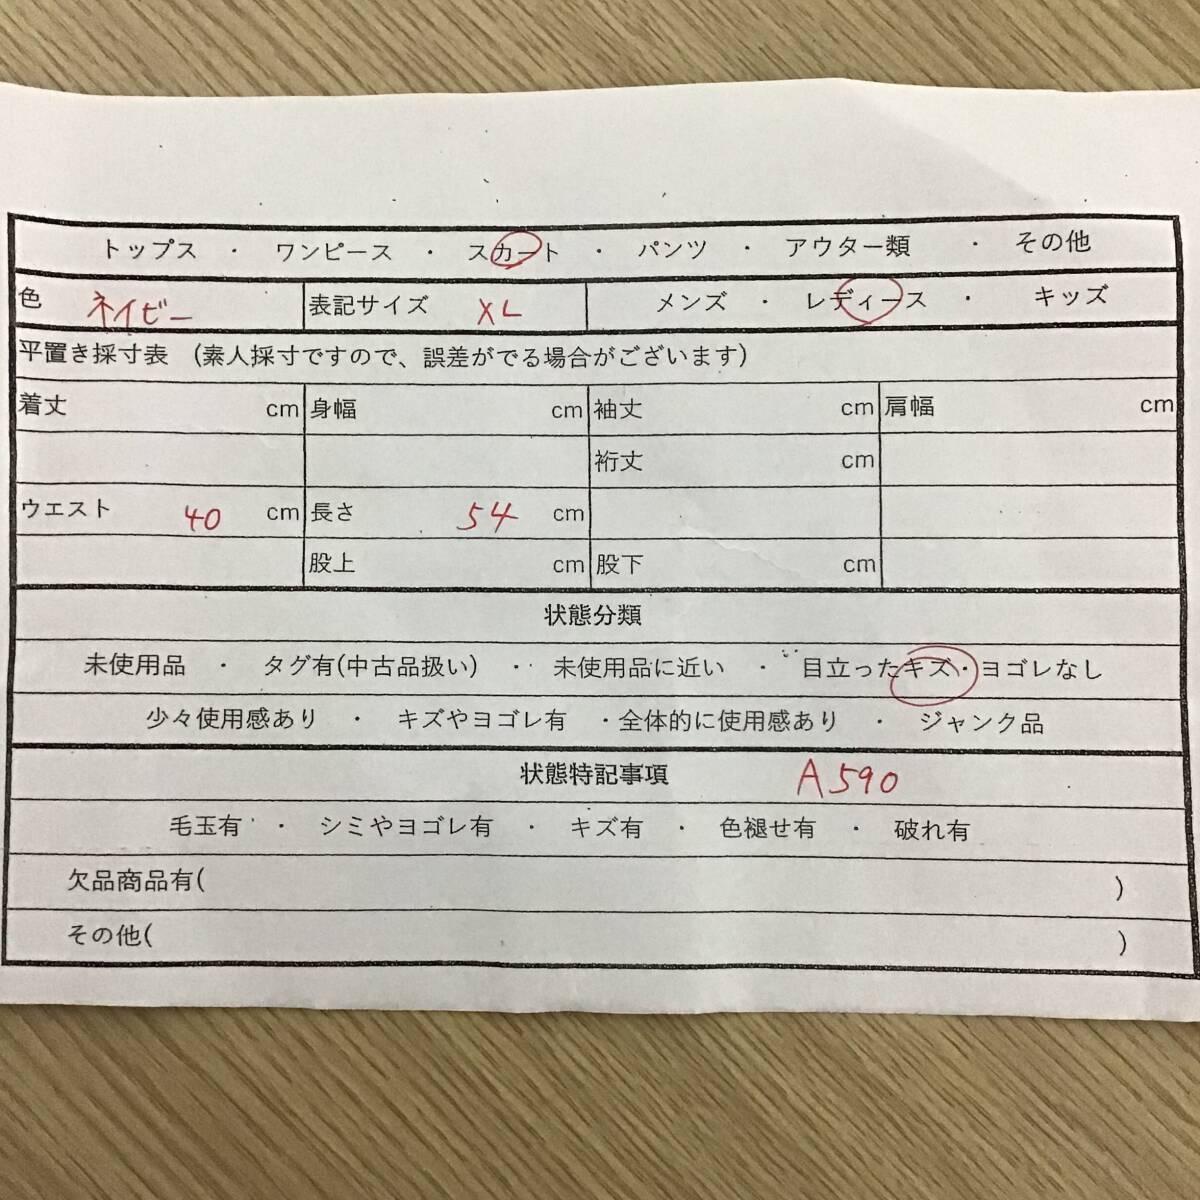 トップス ・ ワンピース ・ スカート ・ パンツ ・ アウター類 ・ その他
色 ネイビー 表記サイズ XL メンズ ・ レディース ・ キッズ
平置き採寸表 (素人採寸ですので、誤差がでる場合がございます)
着丈 cm 身幅 cm 袖丈 cm 肩幅 cm
裄丈 cm
ウエスト 40 cm 長さ 54 cm
股上 cm 股下 cm
状態分類
未使用品 ・ タグ有(中古品扱い) ・ 未使用品に近い ・ 目立ったキズ・ヨゴレなし
少々使用感あり ・ キズやヨゴレ有 ・全体的に使用感あり ・ ジャンク品
状態特記事項 A590
毛玉有 ・ シミやヨゴレ有 ・ キズ有 ・ 色褪せ有 ・ 破れ有
欠品商品有( )
その他( )